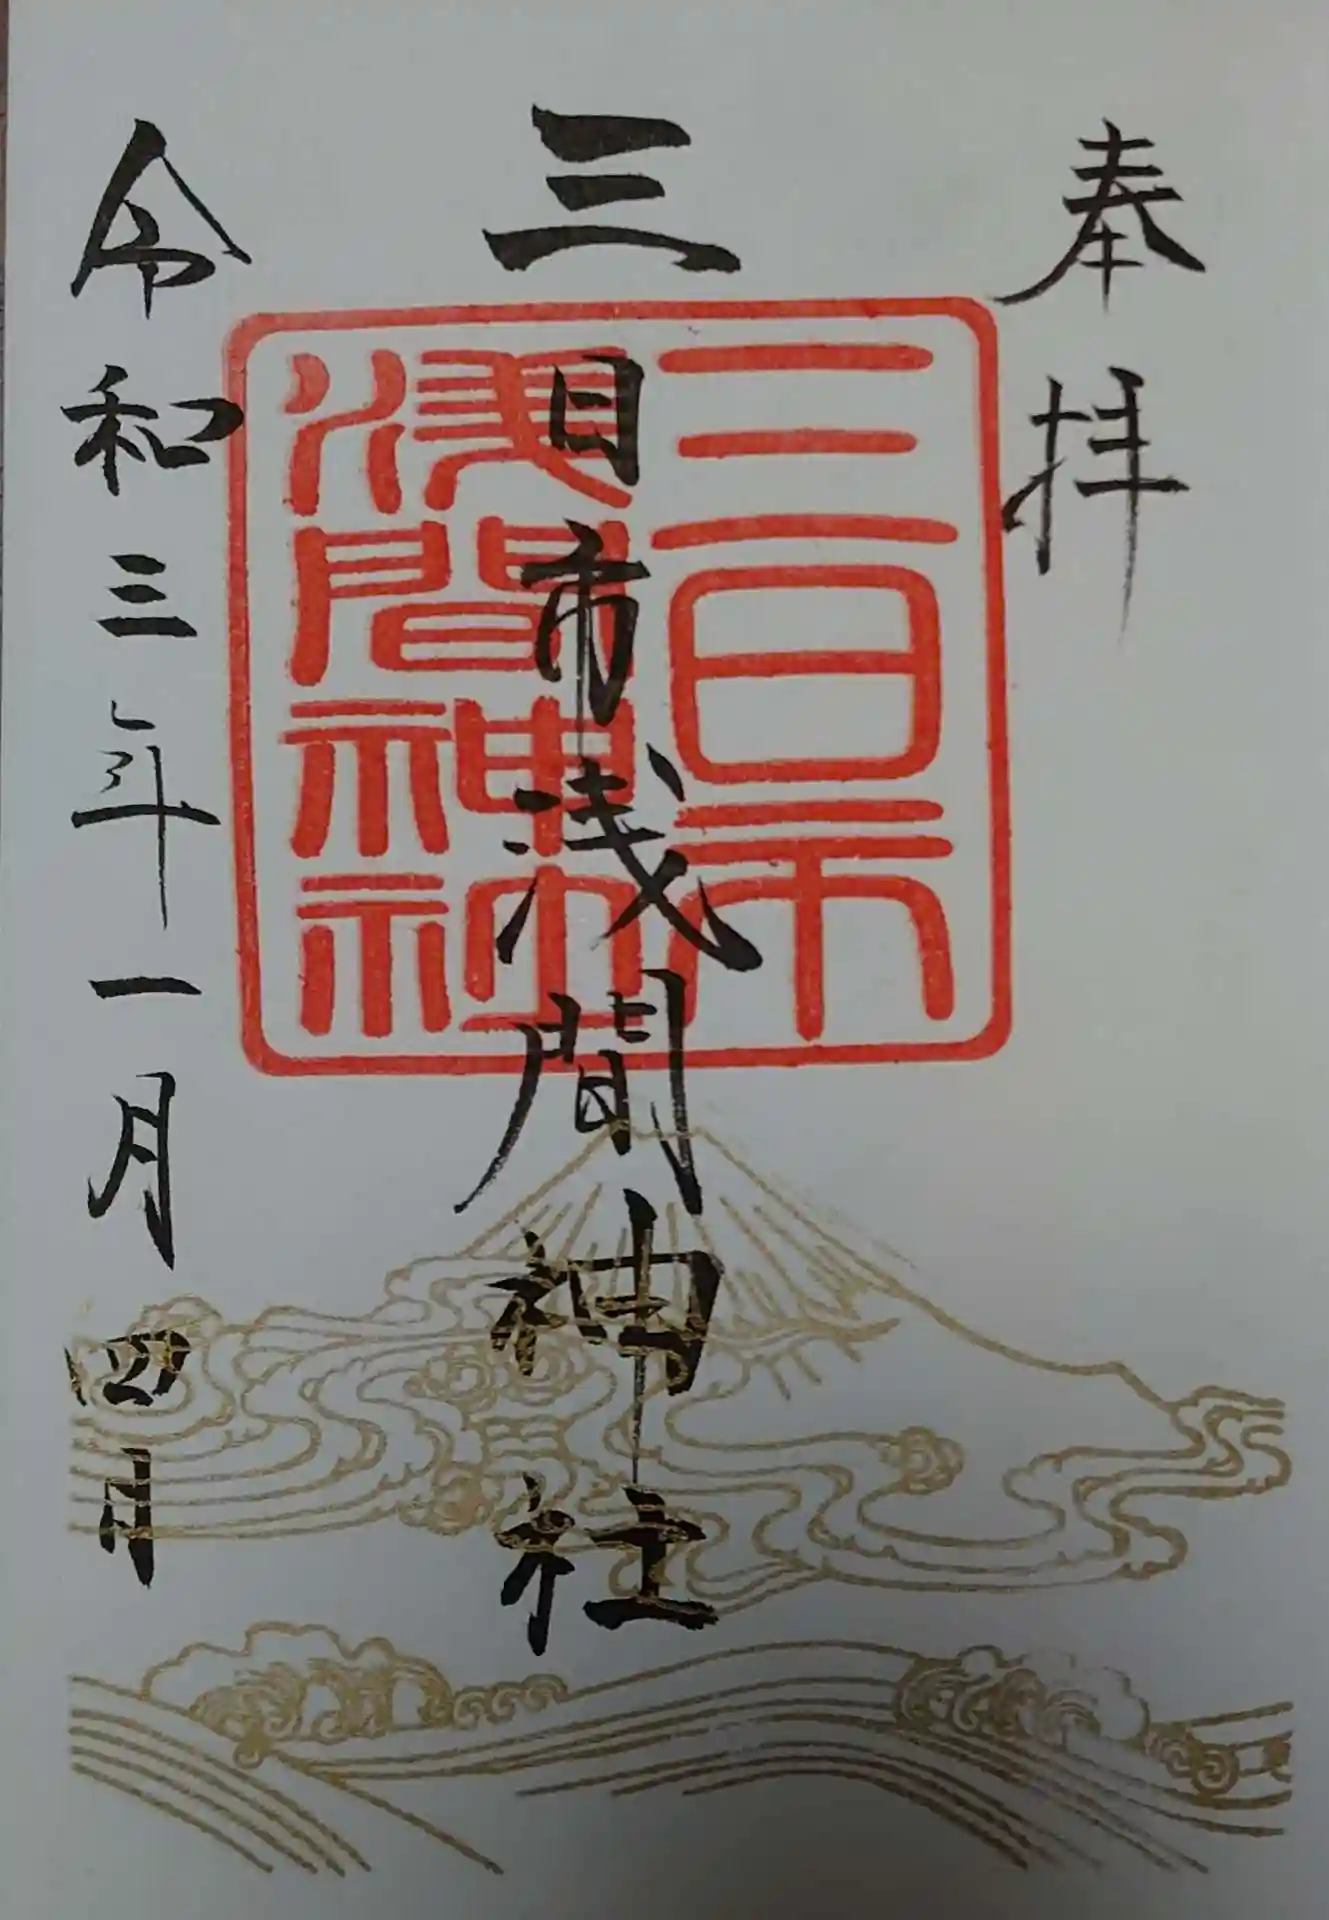 奉拝
三日市浅間神社
三日市
浅間神社
令和三年一月四日